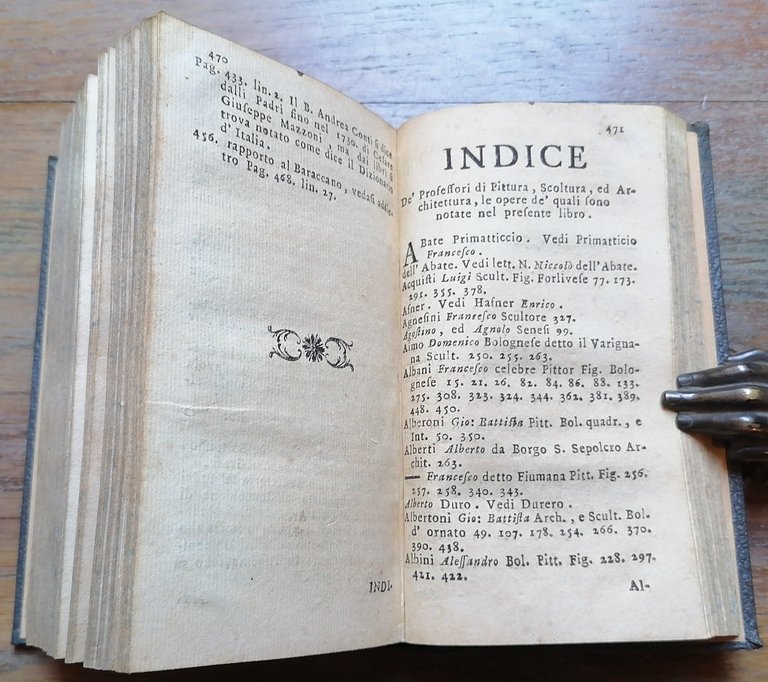 470
Pag. 433. lin. 2. Il B. Andrea Conti si dice
dalli Padri fino nel 1730. di Cesare
Giuseppe Mazzoni, ma dai libri si
trova notato come dice il Dizionario
d' Italia.
456. rapporto al Baraccano, vedasi addie-
tro Pag. 468. lin. 27.
INDI-
471
INDICE
De' Profeſſori di Pittura, Scoltura, ed Ar-
chitettura, le opere de' quali ſono
notate nel preſente libro.
ABate Primatticcio. Vedi Primaticcio
Franceſco.
dell' Abate. Vedi lett. N. Niccolò dell'Abate.
Acquiſti Luigi Scult. Fig. Forliveſe 77. 173.
291. 355. 378.
Afner. Vedi Hafner Enrico.
Agneſini Franceſco Scultore 327.
Agoſtino, ed Agnolo Seneſi 99.
Aimo Domenico Bologneſe detto il Varigna-
na Scult. 250. 255. 263.
Albani Franceſco celebre Pittor Fig. Bolo-
gneſe 15. 21. 26. 82. 84. 86. 88. 133.
275. 308. 323. 324. 344. 362. 381. 389.
448. 450.
Alberoni Gio: Battiſta Pitt. Bol. quadr., e
Int. 50. 350.
Alberti Alberto da Borgo S. Sepolcro Ar-
chit. 263.
— Franceſco detto Fiumana Pitt. Fig. 256.
257. 258. 340. 343.
Alberto Duro. Vedi Durero.
Albertoni Gio: Battiſta Arch., e Scult. Bol.
d' ornato 49. 107. 178. 254. 266. 370.
390. 438.
Albini Aleſſandro Bol. Pitt. Fig. 228. 297.
421. 422.
Al-